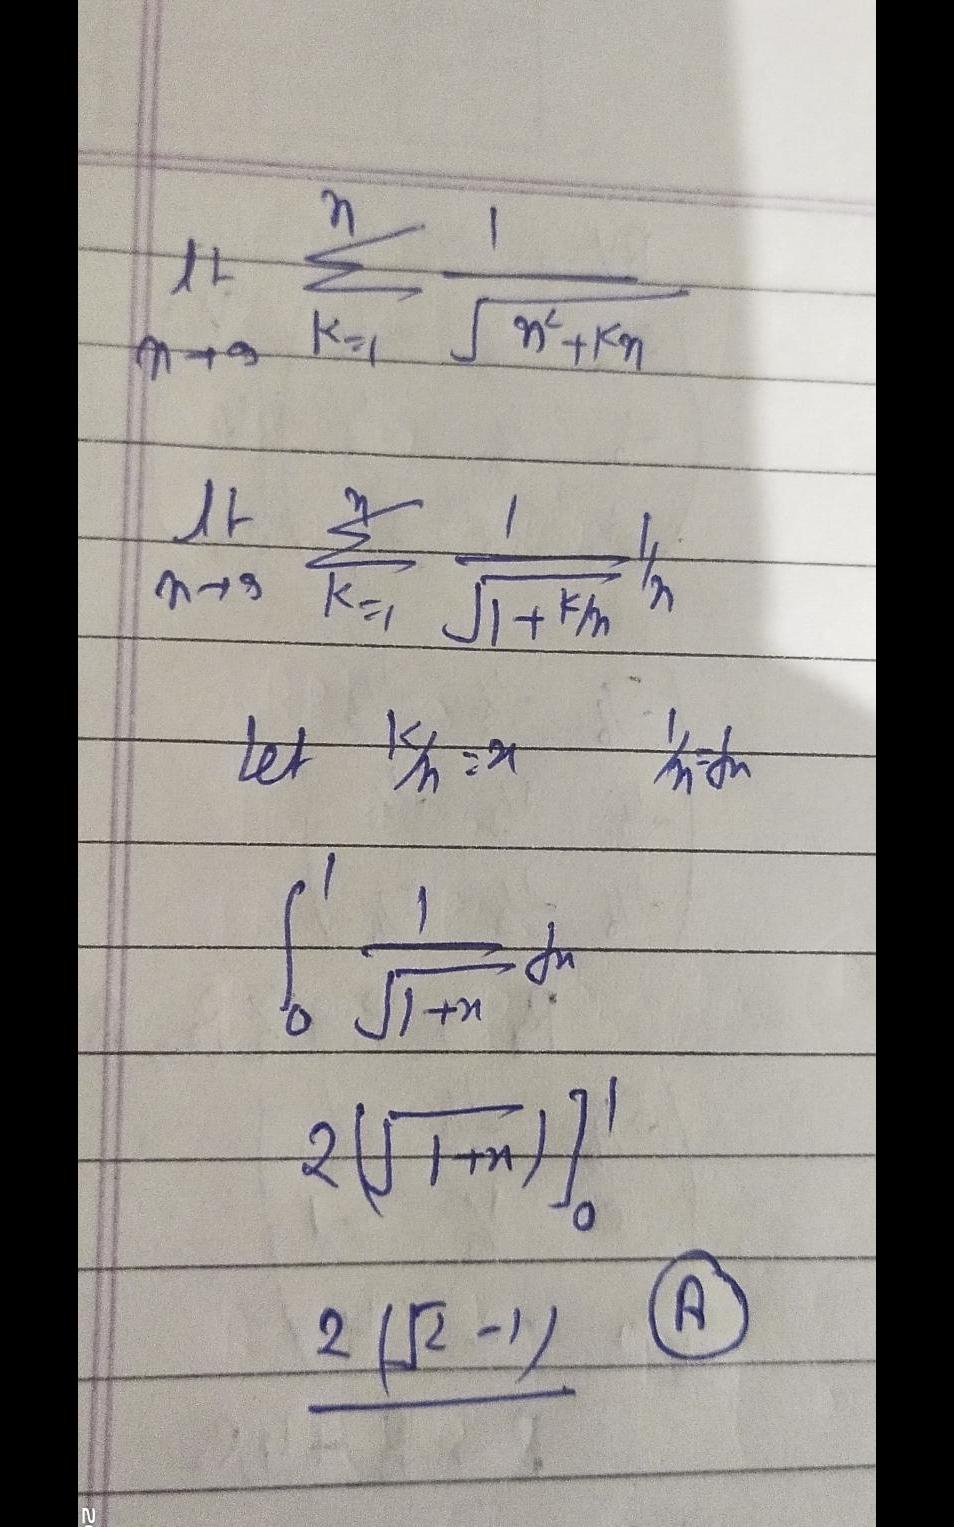 lt n→∞ n Σ K=1 1/√(n²+Kn)
lt n→∞ n Σ K=1 1/√(1+K/n) 1/n
let K/n = x 1/n = dx
∫₀¹ 1/√(1+x) dx
2(√(1+x))]₀¹
2(√2 -1) A